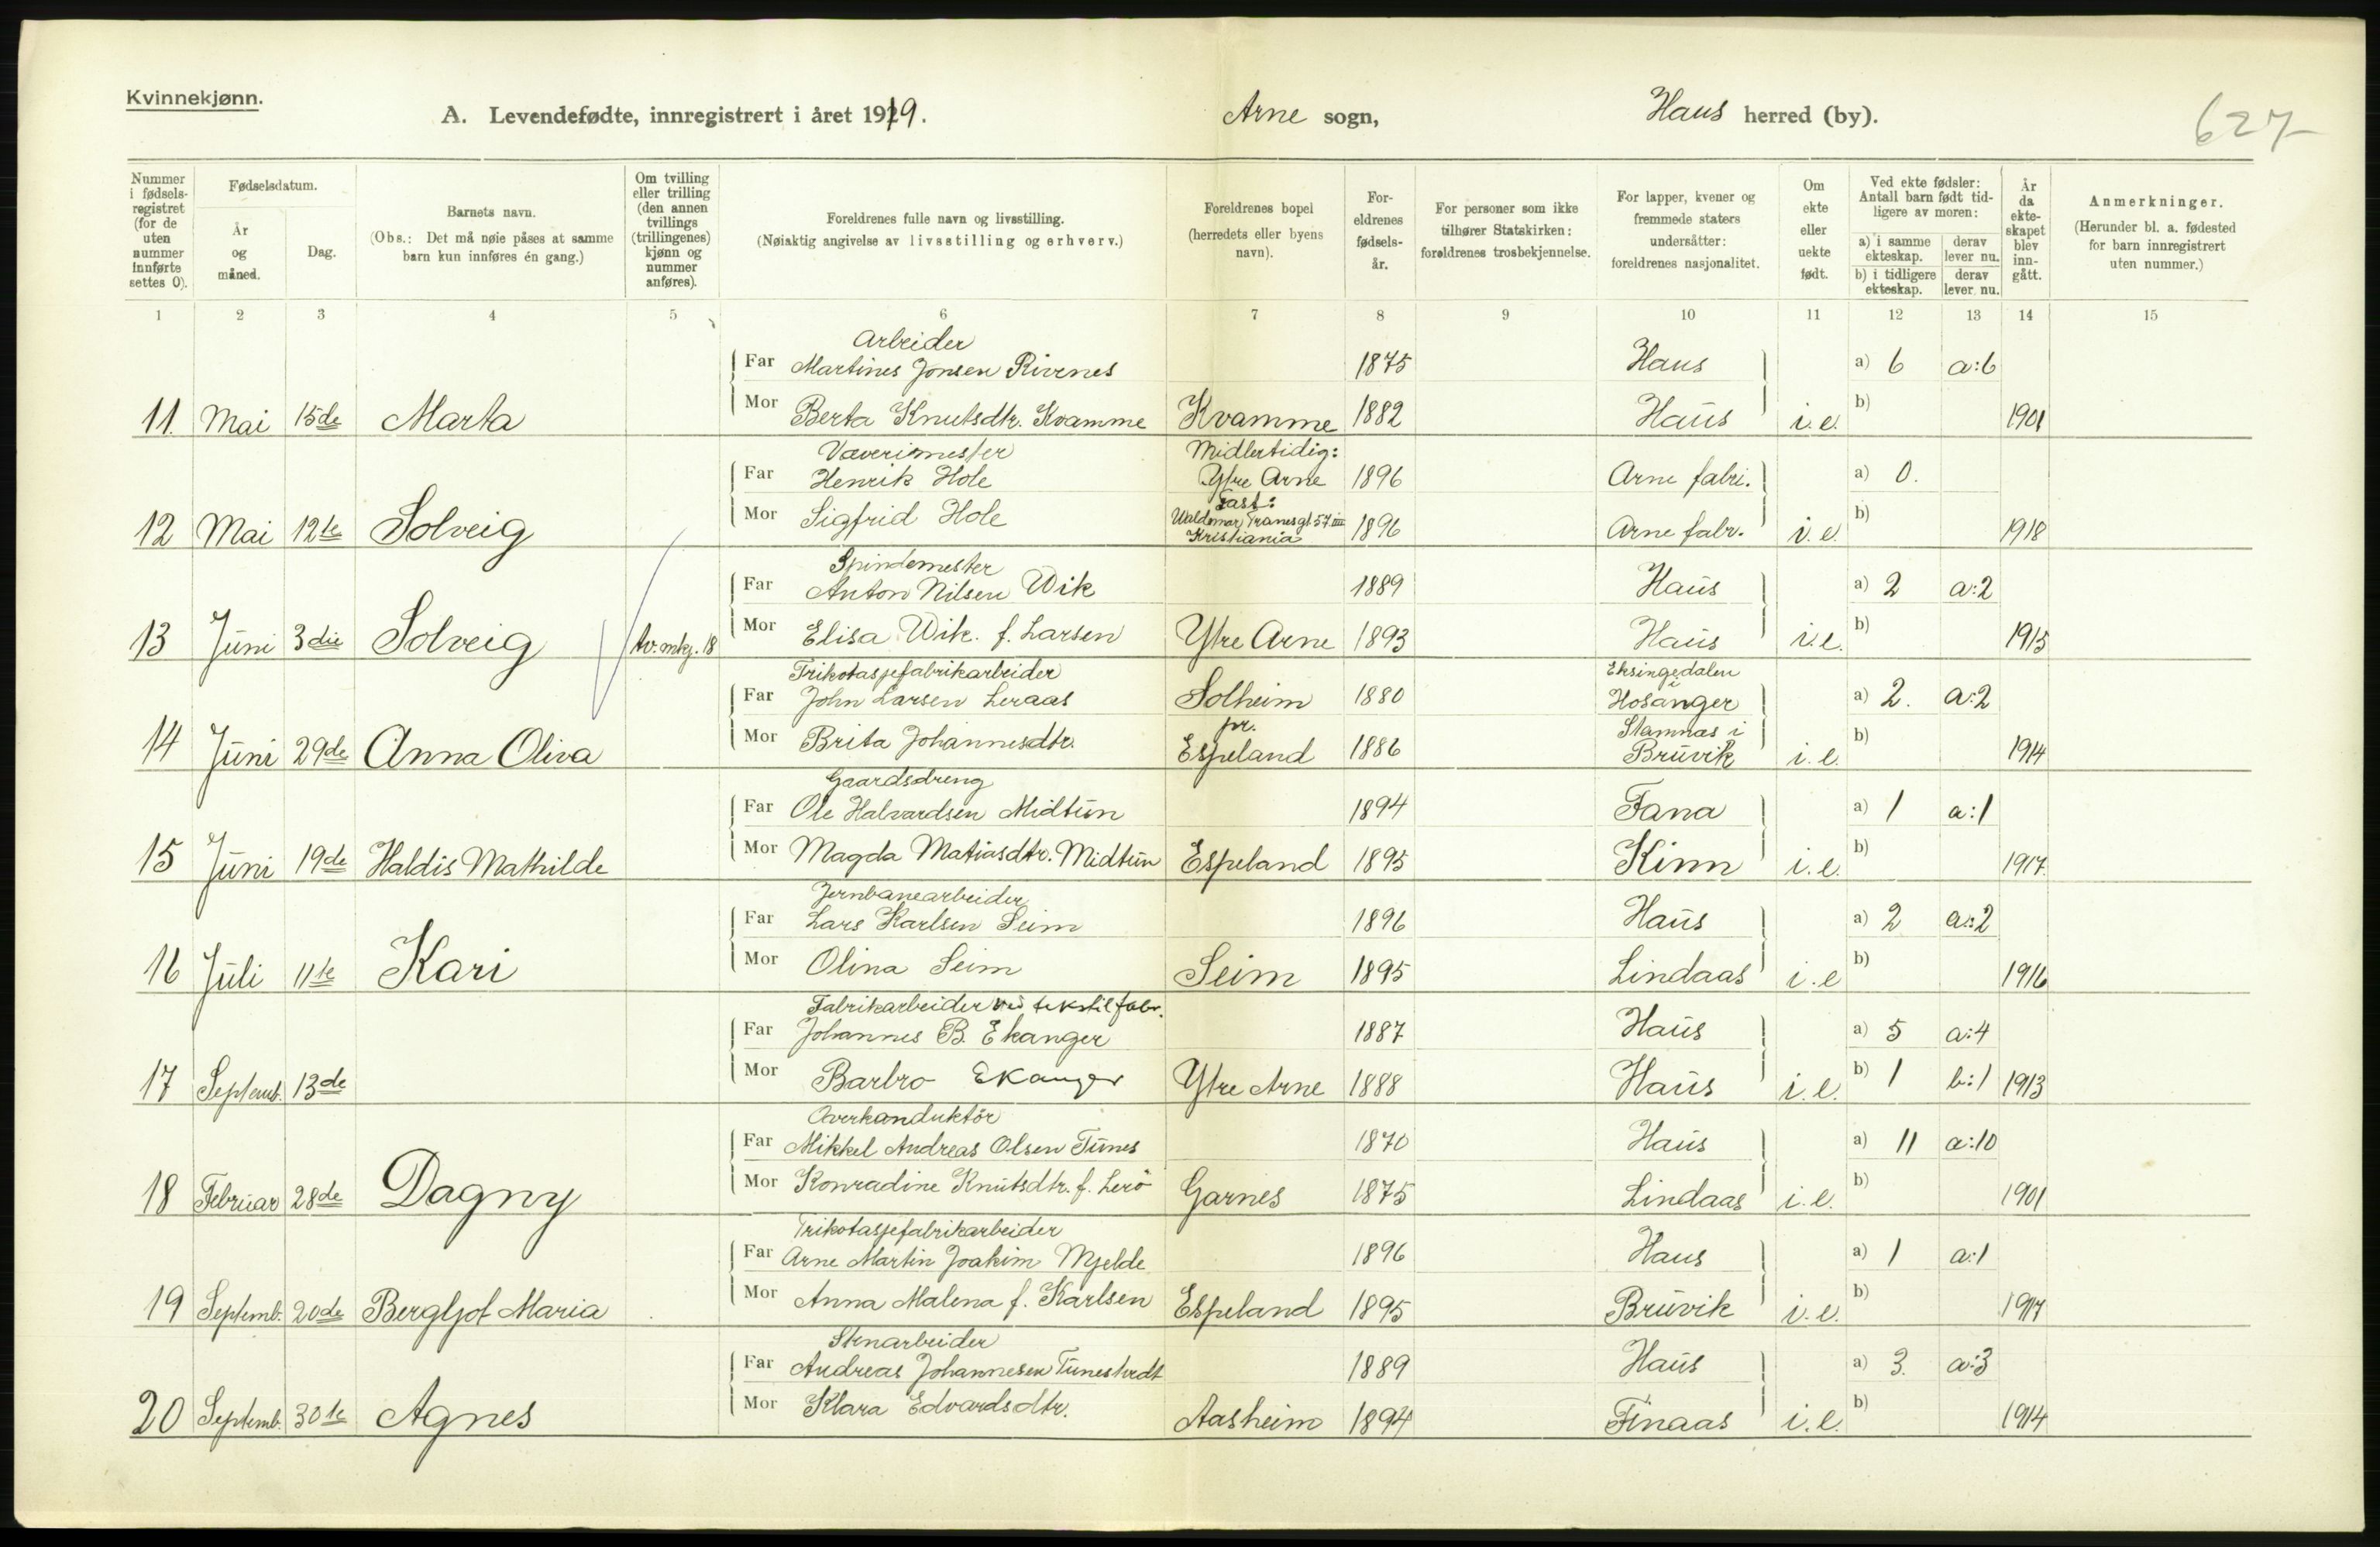 Kvinnekjønn.
A. Levendefødte, innregistrert i året 1919.
Arne sogn,
Haus herred (by).
627
Nummer i fødselsregistret (for de uten nummer innførte settes 0).
Fødselsdatum.
År og måned.
Dag.
Barnets navn.
(Obs.: Det må nøie påses at samme barn kun innføres én gang.)
Om tvilling eller trilling (den annen tvillings (trillingenes) kjønn og nummer anføres).
Foreldrenes fulle navn og livsstilling.
(Nøiaktig angivelse av livsstilling og erhverv.)
Foreldrenes bopel (herredets eller byens navn).
Foreldrenes fødselsår.
For personer som ikke tilhører Statskirken: foreldrenes trosbekjennelse.
For lapper, kvener og fremmede staters undersåtter: foreldrenes nasjonalitet.
Om ekte eller uekte født.
Ved ekte fødsler: Antall barn født tidligere av moren:
a) i samme ekteskap. derav lever nu.
b) i tidligere ekteskap. derav lever nu.
År da ekteskapet blev inngått.
Anmerkninger.
(Herunder bl. a. fødested for barn innregistrert uten nummer.)
1 2 3 4 5 6 7 8 9 10 11 12 13 14 15
Arbeider
Far Martines Jonsen Rivenes 1875 Haus a) 6 a:6
11. Mai 15de Marta Mor Berta Knutsdtr. Kvamme Kvamme 1882 Haus i.e. b) 1901
Væverimester Midlertidig:
Far Henrik Hole Ytre Arne 1896 Arne fabr. a) 0.
Fast:
12 Mai 12te Solveig Mor Sigfrid Hole Waldemar Tranesgt. 57 III Kristiania 1896 Arne fabr. i.e. b) 1918
Spindemester
Far Anton Nilsen Wik 1889 Haus a) 2 a:2
13 Juni 3die Solveig tv. mkj. 18 Mor Elisa Wik. f. Larsen Ytre Arne 1893 Haus i.e. b) 1915
Trikotasjefabrikarbeider Eksingedalen i
Far John Larsen Leraas Solheim 1880 Hosanger a) 2. a:2
pr. Stamnas i
14 Juni 29de Anna Oliva Mor Brita Johannesdtr. Espeland 1886 Bruvik i.e. b) 1914
Gaardsdreng
Far Ole Halvardsen Midtun 1894 Fana a) 1 a:1
15 Juni 19de Haldis Mathilde Mor Magda Matiasdtr. Midtun Espeland 1895 Kinn i.e. b) 1917.
Jernbanearbeider
Far Lars Karlsen Seim 1896 Haus a) 2 a:2
16 Juli 11te Kari Mor Olina Seim Seim 1895 Lindaas i.e b) 1916
Fabrikarbeider ved tekstilfabr.
Far Johannes B. Ekanger 1887 Haus a) 5 a:4
17 Septemb. 13de Mor Barbro Ekanger Ytre Arne 1888 Haus i.e. b) 1 b:1 1913
Overkonduktör
Far Mikkel Andreas Olsen Tunes 1870 Haus a) 11 a:10
18 Februar 28de Dagny Mor Konradine Knutsdtr. f. Lerö Garnes 1875 Lindaas i.e. b) 1901
Trikotasjefabrikarbeider
Far Arne Martin Joakim Mjelde 1896 Haus a) 1 a:1
19 Septemb. 20de Bergljot Maria Mor Anna Malena f. Karlsen Espeland 1895 Bruvik i.e. b) 1917
Stenarbeider
Far Andreas Johannesen Tunestvedt 1889 Haus a) 3. a:3
20 Septemb. 30te Agnes Mor Klara Edvardsdtr. Aasheim 1894 Finaas i.e. b) 1914